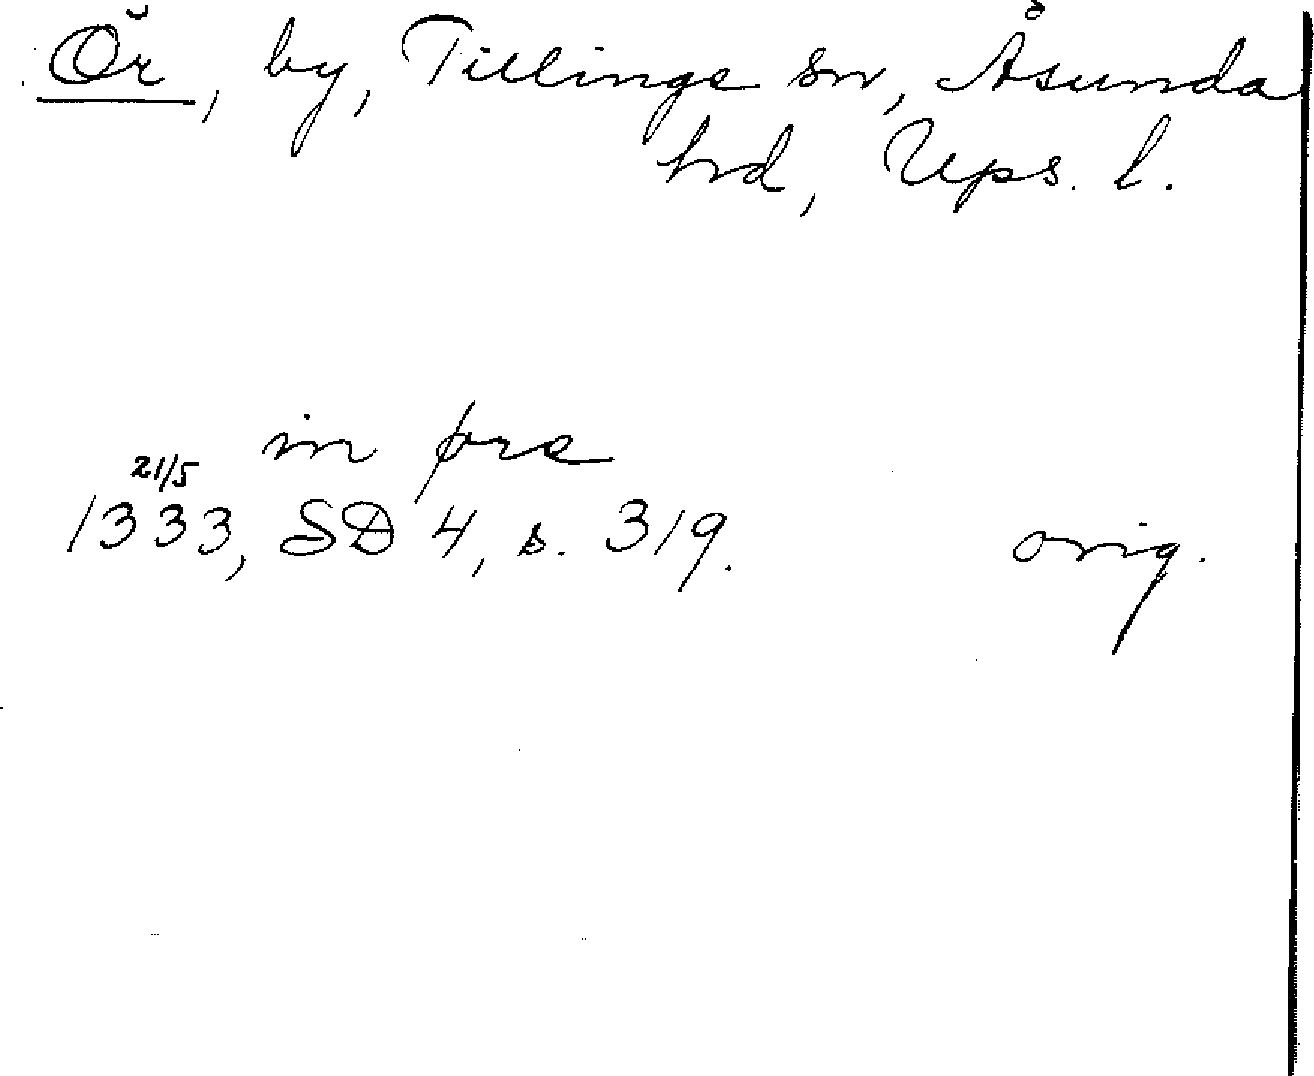 Ör, by, Tillinge sn, Åsunda
hd, Ups. l.
in øre
21/5
1333, SD 4, s. 319. orig.